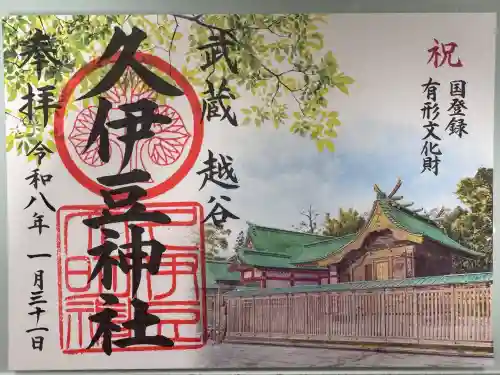 祝
国登録
有形文化財
武蔵 越谷
久伊豆神社
奉拝 令和八年 一月三十一日